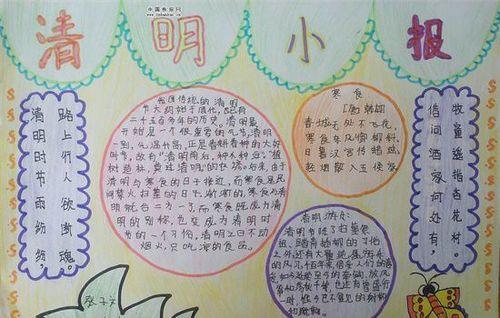 清明小报
清明时节雨纷纷，
路上行人欲断魂。
我国传统的清明
节大约始于周代，已有
二千五百多年的历史。清明最
开始是一个很重要的节气，清明
一到，气温升高，正是春耕春种的大好
时节，故有“清明前后，种瓜种豆”。“植
树造林，莫过清明”的农谚。后来，由于
清明与寒食的日子接近，而寒食是民
间禁火、扫墓的日子，渐渐的，寒食与清
明就合二为一了，而寒食既成为清
明的别称，也变成为清明时
节的一个习俗，清明之日不动
烟火，只吃凉的食品。
寒食
春城无处不飞花，
寒食东风御柳斜。
日暮汉宫传蜡烛，
轻烟散入五侯家
清明节除了扫墓祭
祖、踏青插柳的习俗
借问酒家何处有，
牧童遥指杏花村。